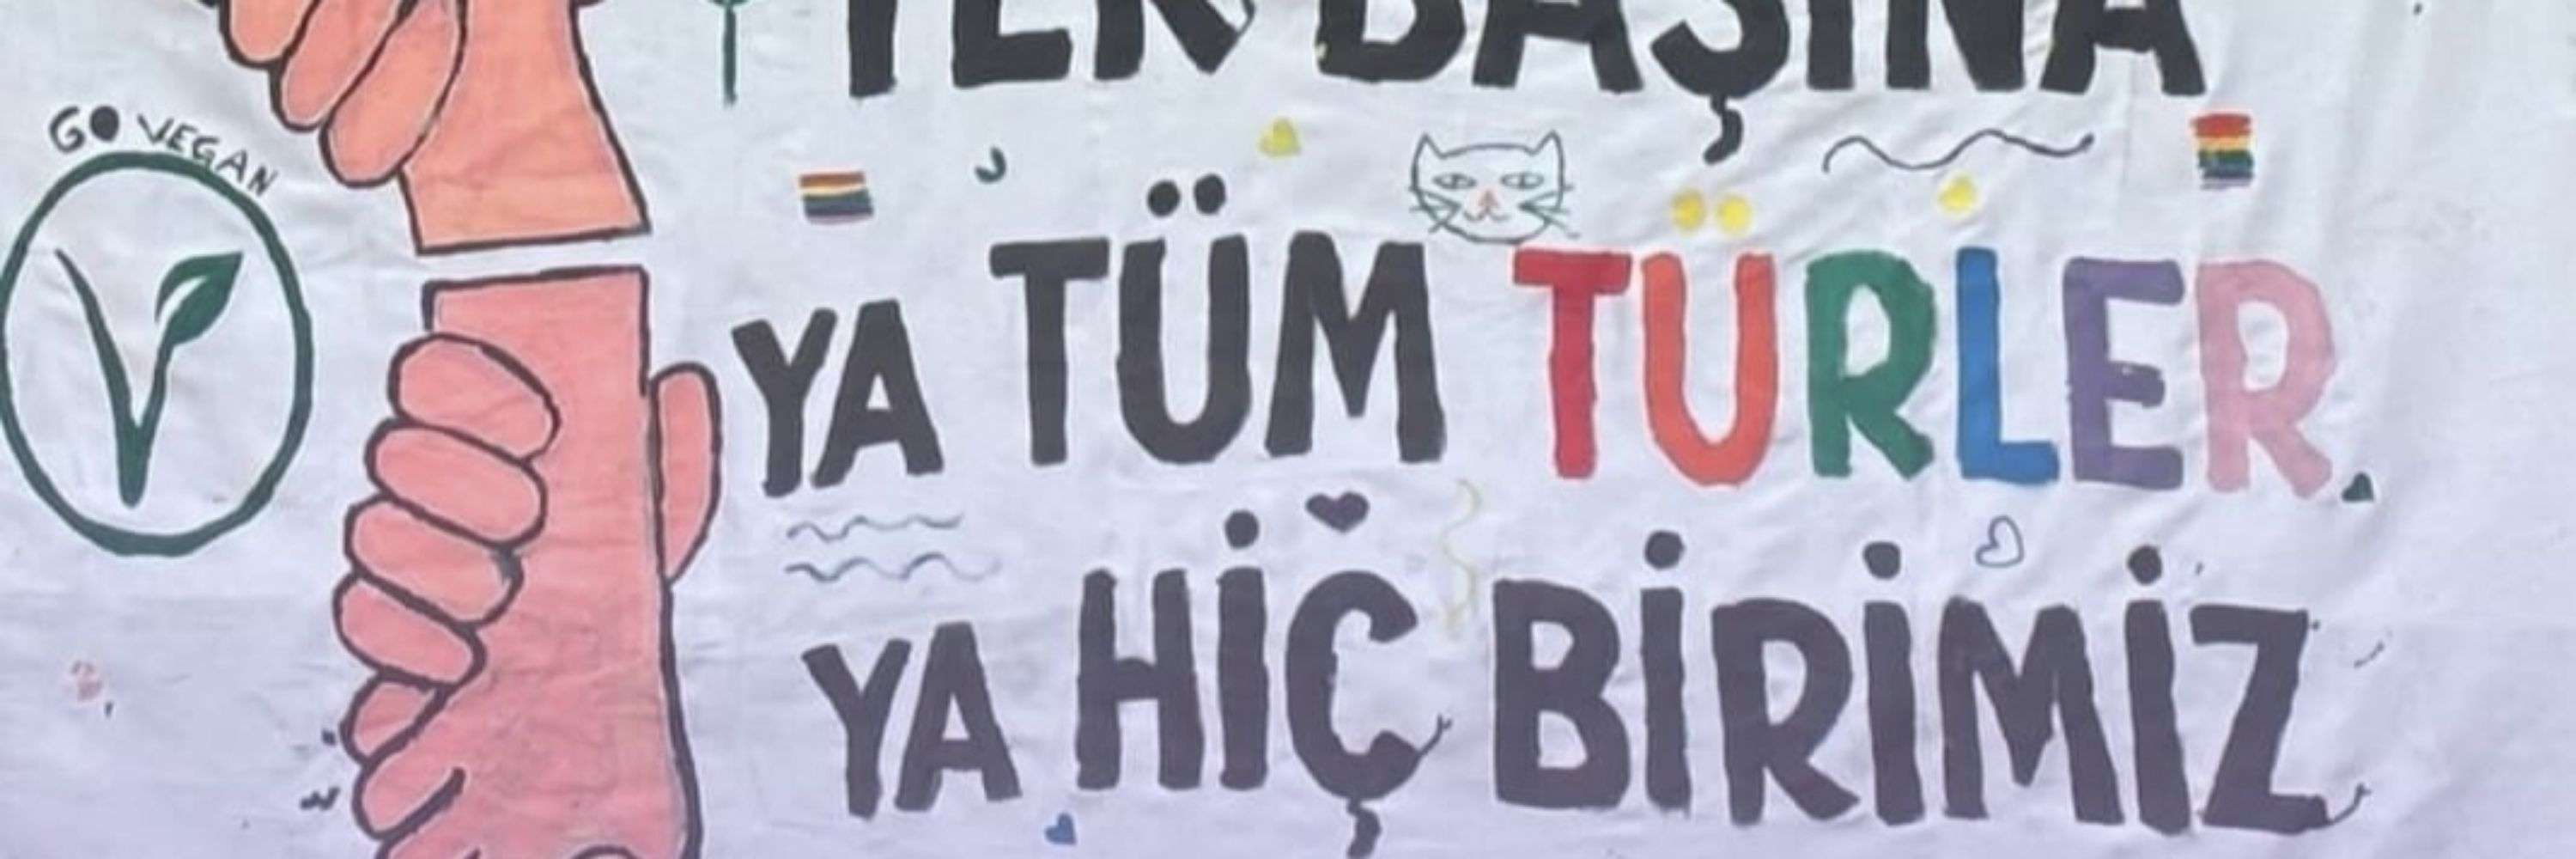 TEK BAŞINA
GO VEGAN
YA TÜM TÜRLER
YA HİÇ BİRİMİZ